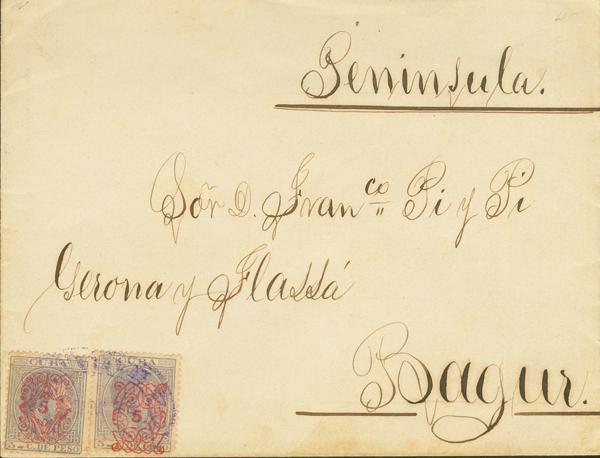 Península.
Sör D. Franco Pi y Pi
Gerona y Flassá
Bagur.
CUBA CUBA
5 5
5 C. DE PESO